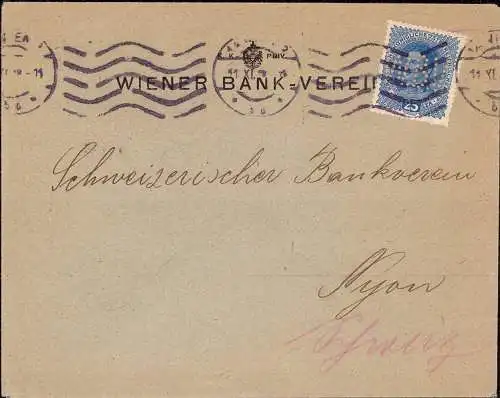 K. PRIV.
WIENER BANK-VEREIN
25
Schweizerischer Bankverein
Nyon
Schweiz